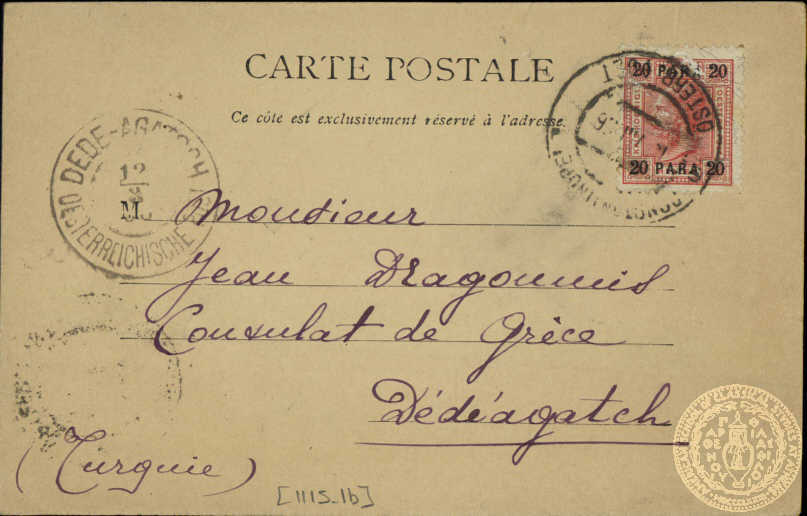 CARTE POSTALE
Ce côte est exclusivement réservé à l'adresse.
20 PARA 20
20 PARA 20
DEDE-AGATSCH
12
ÖSTERREICHISCHE
CONSTANTINOPEL
ÖSTERR
M. Monsieur
Jean Dragoumis
Consulat de Grèce
Dédéagatch
(Turquie)
[1115_1b]